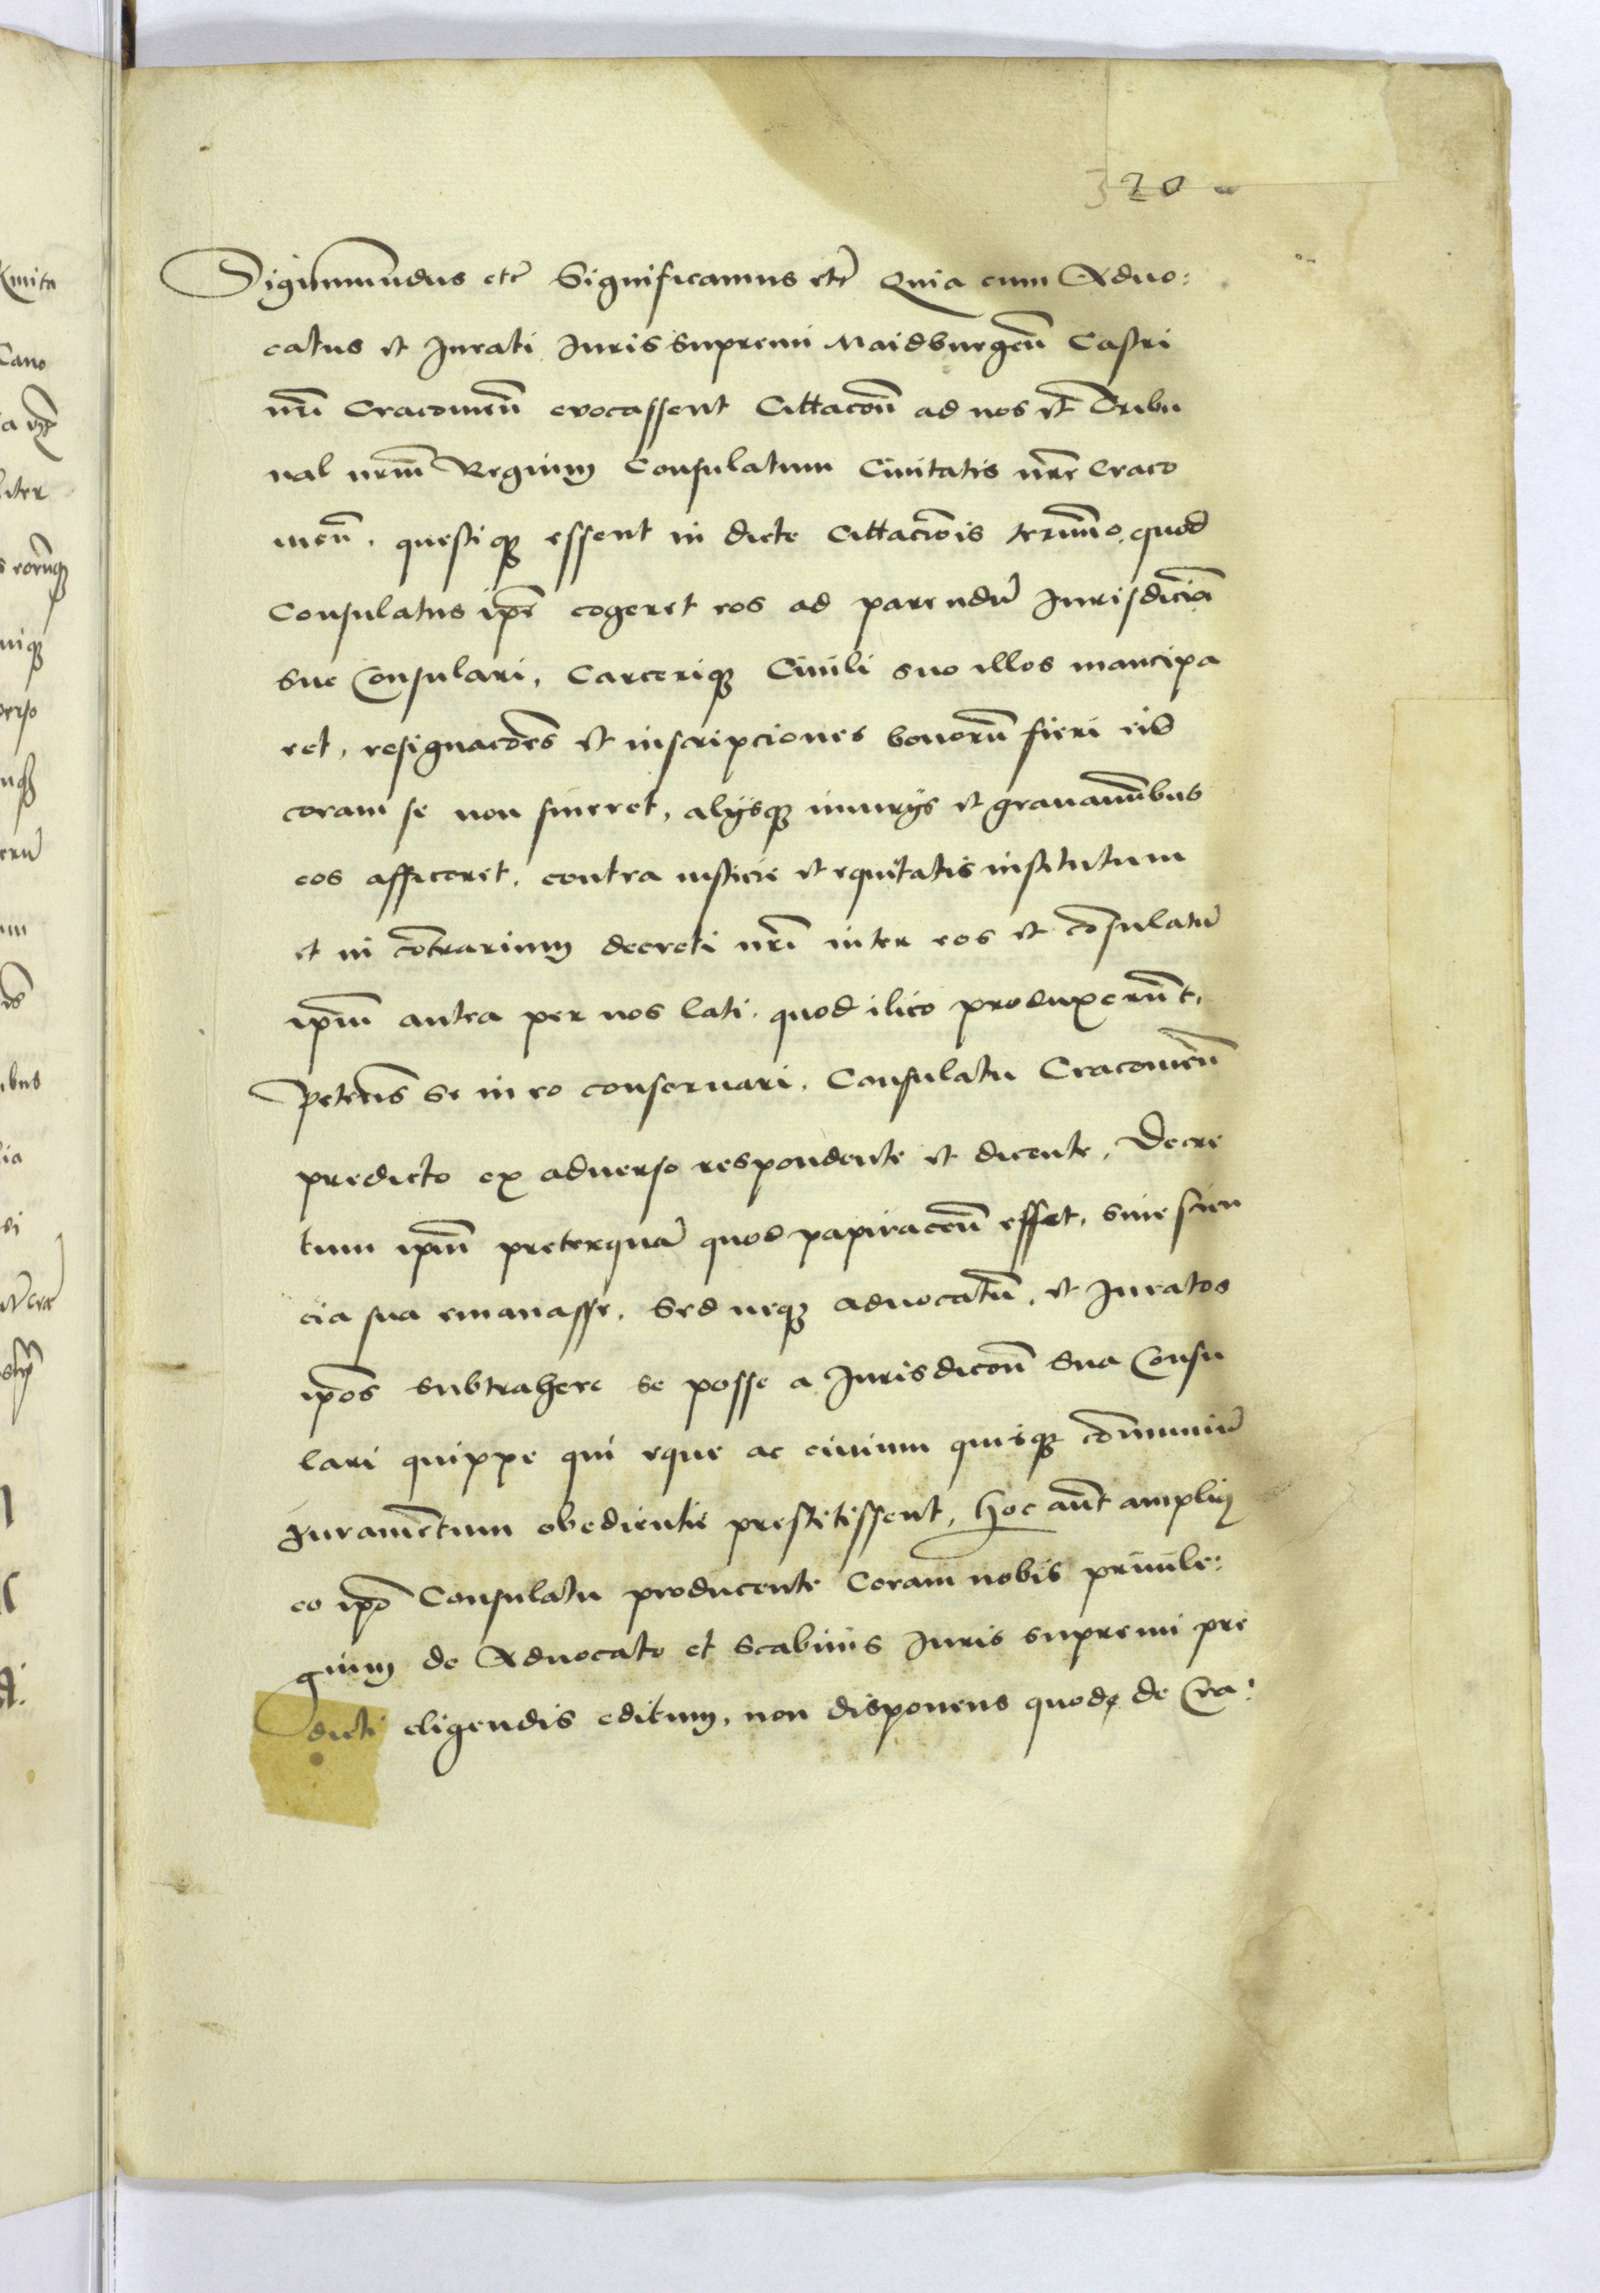 320
Sigismundus etc̃ Significamus etc̃ Quia cum Aduo:
catus et Jurati Juris supremi Maidburgeñ Castri
nr̃i Cracouieñ euocassent Cittacoñ ad nos et Tribu
nal nrm̃ Regium Consulatum Ciuitatis nrẽ Craco
uieñ. questiqꝫ essent in dicte Cittacionis termino. quod
Consulatus ipẽ cogeret eos ad parendũ Jurisdicioni
sue Consulari, Carceriqꝫ Ciuili suo illos mancipa
ret, resignacões et inscripciones bonorũ fieri eis
coram se non sineret, alijsqꝫ iniurijs et grauamĩbus
eos afficeret. contra iusticie et equitatis institutum
et in cõtrarium decreti nrĩ inter eos et cõsulatũ
ipm̃ antea per nos lati. quod ilico produxerũt.
Petens̃ se in eo conseruari. Consulatu Cracouieñ
predicto ex aduerso respondente et dicente, Decre
tum ipm̃ preterquã quod papiraceũ esset, sine scien
cia sua emanasse. Sed neqꝫ aduocatũ. et Juratos
ipõs subtrahere se posse a Jurisdicoñ sua Consu
lari quippe qui eque ac ciuium quisqꝫ cõmuniũ
Juramentum obedientie prestitissent, Hoc aũt amplius
eo ipõ Consulatu producente Coram nobis priuile:
gium de Aduocato et Scabinis Juris supremi pre
dicti eligendis editum, non disponens quod de Cra: